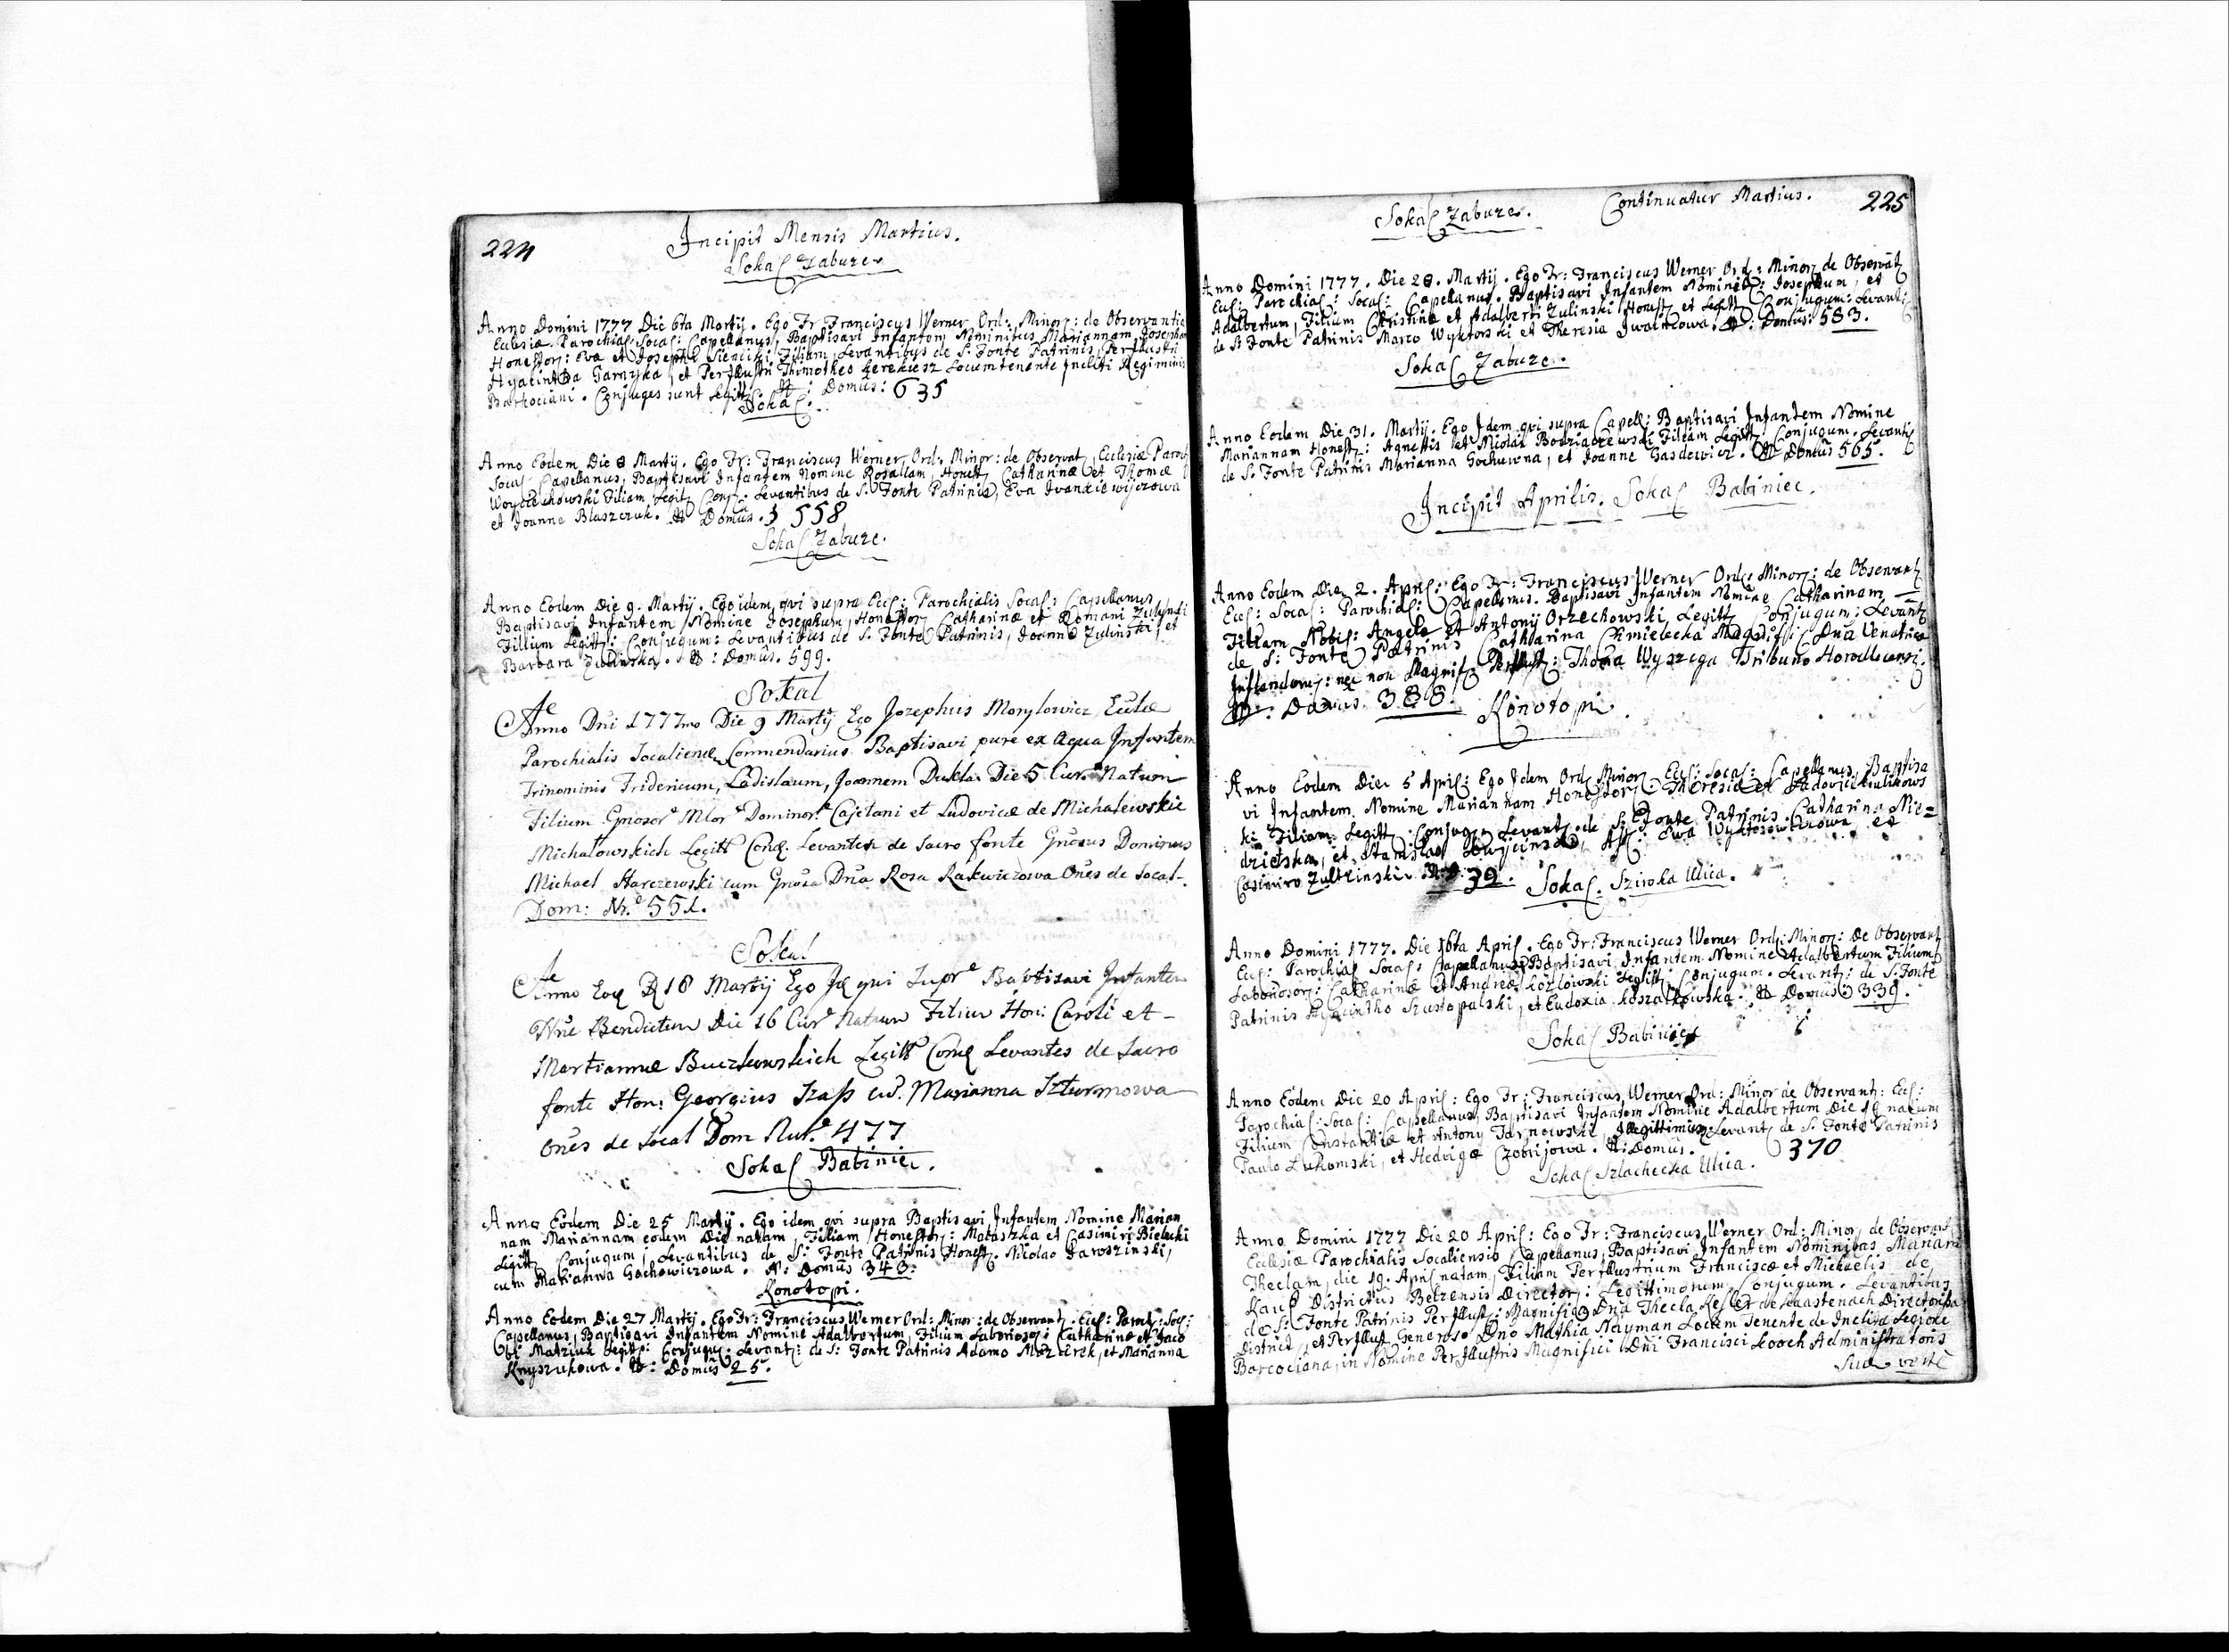 224
Incipit Mensis Martius.
Sokal Zabuze
Anno Domini 1777 Die 6ta Martij. Ego Fr: Franciscus Werner Ord: Minor: de Observantia
Eclesiæ Parochial: Socal: Capellanus, Baptisavi Infantem Nominibus Mariannam, Josepham
Honestor: Evæ et Josephi Sienicki Filiam, Levantibus de S: Fonte Patrinis, PerIllustri
Hyacintha Garnyka, et PerIllustri Thimotheo Kerekiesz Locumtenente Incliti Regiminis
Barkociani. Conjuges sunt Legitt: N: Domus: 635
Sokal.
Anno Eodem Die 8 Martij. Ego Fr: Franciscus Werner Ord: Minor: de Observat, Eclesiæ Paroch
Socal Capellanus, Baptisavi Infantem Nomine Rosaliam, Honest Catharinæ et Thomæ
Woyciechowski Filiam Legit Conj: Levantibus de S: Fonte Patrinis, Eva Ivankiewiczowa
et Joanne Blaszczuk. N Domus. 558
Sokal Zabuze.
Anno Eodem Die 9. Martij. Ego idem, qvi supra Eccl: Parochialis Socal: Capellanus,
Baptisavi Infantem Nomine Josephum, Honestor Catharinæ et Romani Zulinski
Fillium Legitt: Conjugum: Levantibus de S: Fonte Patrinis, Joanne Zulinski, et
Barbara Zulinska. N: Domus. 599.
Sokal
Anno Dni 1777mo Die 9 Martij Ego Jozephus Morylowicz Ecclæ
Parochialis Socaliensæ Commendarius Baptisavi pure ex Aqua Infantem
Trinominis Fridericum, Ladislaum, Joannem Dukla Die 5 Cur. Natum
Filium Gnosor Mlor Dominor. Cajetani et Ludovicæ de Michalewskie
Michalowskich Legitt Conj. Levantes de Sacro fonte Gnosus Dominus
Michael Starczewski cum Gnosa Dna Rosa Rakwiczowa Ones de Socal.
Dom: Nr. 551.
Sokal
Anno Eod D 18 Martij Ego Id qui Supr Baptisavi Infantem
Nne Benedictum Die 16 Cur Natum Filium Hon: Caroli et
Martiannæ Buczkowskich Legitt Conj Levantes de Sacro
fonte Hon: Georgius Szass cu. Marianna Szturmowa
Ones de Socal Dom Nu. 477
Sokal Babiniec.
Anno Eodem Die 25 Martij. Ego idem qvi supra Baptisavi Infantem Nomine Marian
nam Mariannam eodem Die natam, Filiam Honestor: Mataszka et Casimiri Bielecki
Legitt Conjugum, Levantibus de S: Fonte Patrinis Honest. Nicolao Jaroszinski,
cum Marianna Gochowiczowa. N: Domus 343:
Konotopi.
Anno Eodem Die 27 Martij. Ego Fr: Franciscus Werner Ord: Minor: de Observant. Eccl: Paroch: Soc:
Capellanus, Baptisavi Infantem Nomine Adalbertum, Filium Laborioso: Catharinæ et Jaco
bi Matziuk Legitt: Conjugu: Levant: de S: Fonte Patrinis Adamo Mazurek, et Marianna
Knyszukowa. N: Domus 25.
Sokal Zabuze. Continuatur Martius. 225
Anno Domini 1777. Die 28. Martij. Ego Fr: Franciscus Werner Ord: Minor de Observat
Eccl: Parochial: Socal: Capellanus. Baptisavi Infantem Nominib: Josephum, et
Adalbertum, Filium Christinæ et Adalberti Zulinski Honest et Legitt Conjugum: Levanti
de S: Fonte Patrinis Marco Wyktorski et Theresia Iwanicowa. N: Domus: 583.
Sokal Zabuze.
Anno Eodem Die 31. Martij. Ego Idem qvi supra Capell: Baptisavi Infantem Nomine
Mariannam Honest: Agnettis et Nicolai Filiam Legitt Conjugum. Levanti
de S. Fonte Patrinis Marianna Gochowna, et Joanne Gasdewicz. N Domus 565.
Incipit Aprilis. Sokal Babiniec.
Anno Eodem Die 2. April: Ego Fr: Franciscus Werner Ord: Minor: de Observant
Eccl: Socal: Parochial: Capellanus. Baptisavi Infantem Nomine Catharinam
Filiam Nobil: Angelæ et Antony Orzechowski, Legitt Conjugum: Levant
de S: Fonte Patrinis Catharina Chmielecka Magnif: Dna Venatrice
nec non Magnif PerIllust: Thoma Wyszega Tribuno Horodlecensi.
N: Domus. 388. Konotopi.
Anno Eodem Die 5 April: Ego Idem Ord Minor Eccl: Socal: Capellanus, Baptisa
vi Infantem Nomine Mariannam Honestor: Theresiæ et Ladovici Kulikows
ki Filiam Legitt: Conjug: Levant: de S. Fonte Patrinis. Catharina Nie=
dzielska, et Stanislao Ass: Ewa et
Casimiro Zultzinski. N: 39. Sokal. Sziroka Ulica.
Anno Domini 1777. Die 16ta April. Ego Fr: Franciscus Werner Ord: Minor: De Observant
Eccl: Parochial Socal: Capellanus Baptisavi Infantem Nomine Adalbertum Filium
Laboriosor: Catharinæ et Andreæ Kozlowski Legitt: Conjugum. Levant: de S. Fonte
Patrinis Hyacintho Szustopalski, et Eudoxia Koszalkowska. N Domus 339.
Sokal Babiniec
Anno Eodem Die 20 April: Ego Fr: Franciscus Werner Ord: Minor de Observant: Eccl:
Parochial: Socal: Capellanus, Baptisavi Infantem Nomine Adalbertum Die 19 natum
Filium Constantiæ et Antony Tarnowski, Illegittimus Levant de S. Fonte Patrinis
Paulo Lukomski, et Hedviga Czobrijowa. N: Domus. 370
Sokal Szlachecka Ulica.
Anno Domini 1777 Die 20 April: Ego Fr: Franciscus Werner Ord: Minor de Observant
Ecclesiæ Parochialis Socaliensis Capellanus, Baptisavi Infantem Nominibus Mariann
Theclam, die 19. April natam, Filiam PerIllustrium Franciscæ et Michaelis de
Kauf Districtus Belzensis Director: Legittimorum Conjugum. Levantibus
de S: Fonte Patrinis PerIllust: Magnifica Dna Thecla Kesler de Directorissa
District, et PerIllust Generoso Dno Mathia Nayman Locum Tenente de Inclita Legione
Barcociana, in Nomine PerIllustris Magnifici Dni Francisci Kooch Administratoris